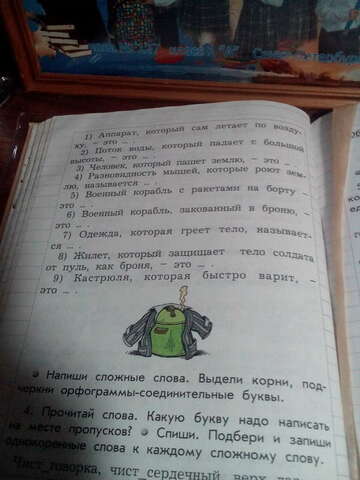 1) Аппарат, который сам летает по возду-
ху, – это ... .
2) Поток воды, который падает с большой
высоты, – это ... .
3) Человек, который пашет землю, – это ... .
4) Разновидность мышей, которые роют зем-
лю, называется ... .
5) Военный корабль с ракетами на борту –
это ... .
6) Военный корабль, закованный в броню, –
это ... .
7) Одежда, которая греет тело, называет-
ся ... .
8) Жилет, который защищает тело солдата
от пуль, как броня, – это ... .
9) Кастрюля, которая быстро варит, –
это ... .
Напиши сложные слова. Выдели корни, под-
черкни орфограммы-соединительные буквы.
4. Прочитай слова. Какую букву надо написать
на месте пропусков? Спиши. Подбери и запиши
однокоренные слова к каждому сложному слову.
Чист_говорка, чист_сердечный, верх_лаз